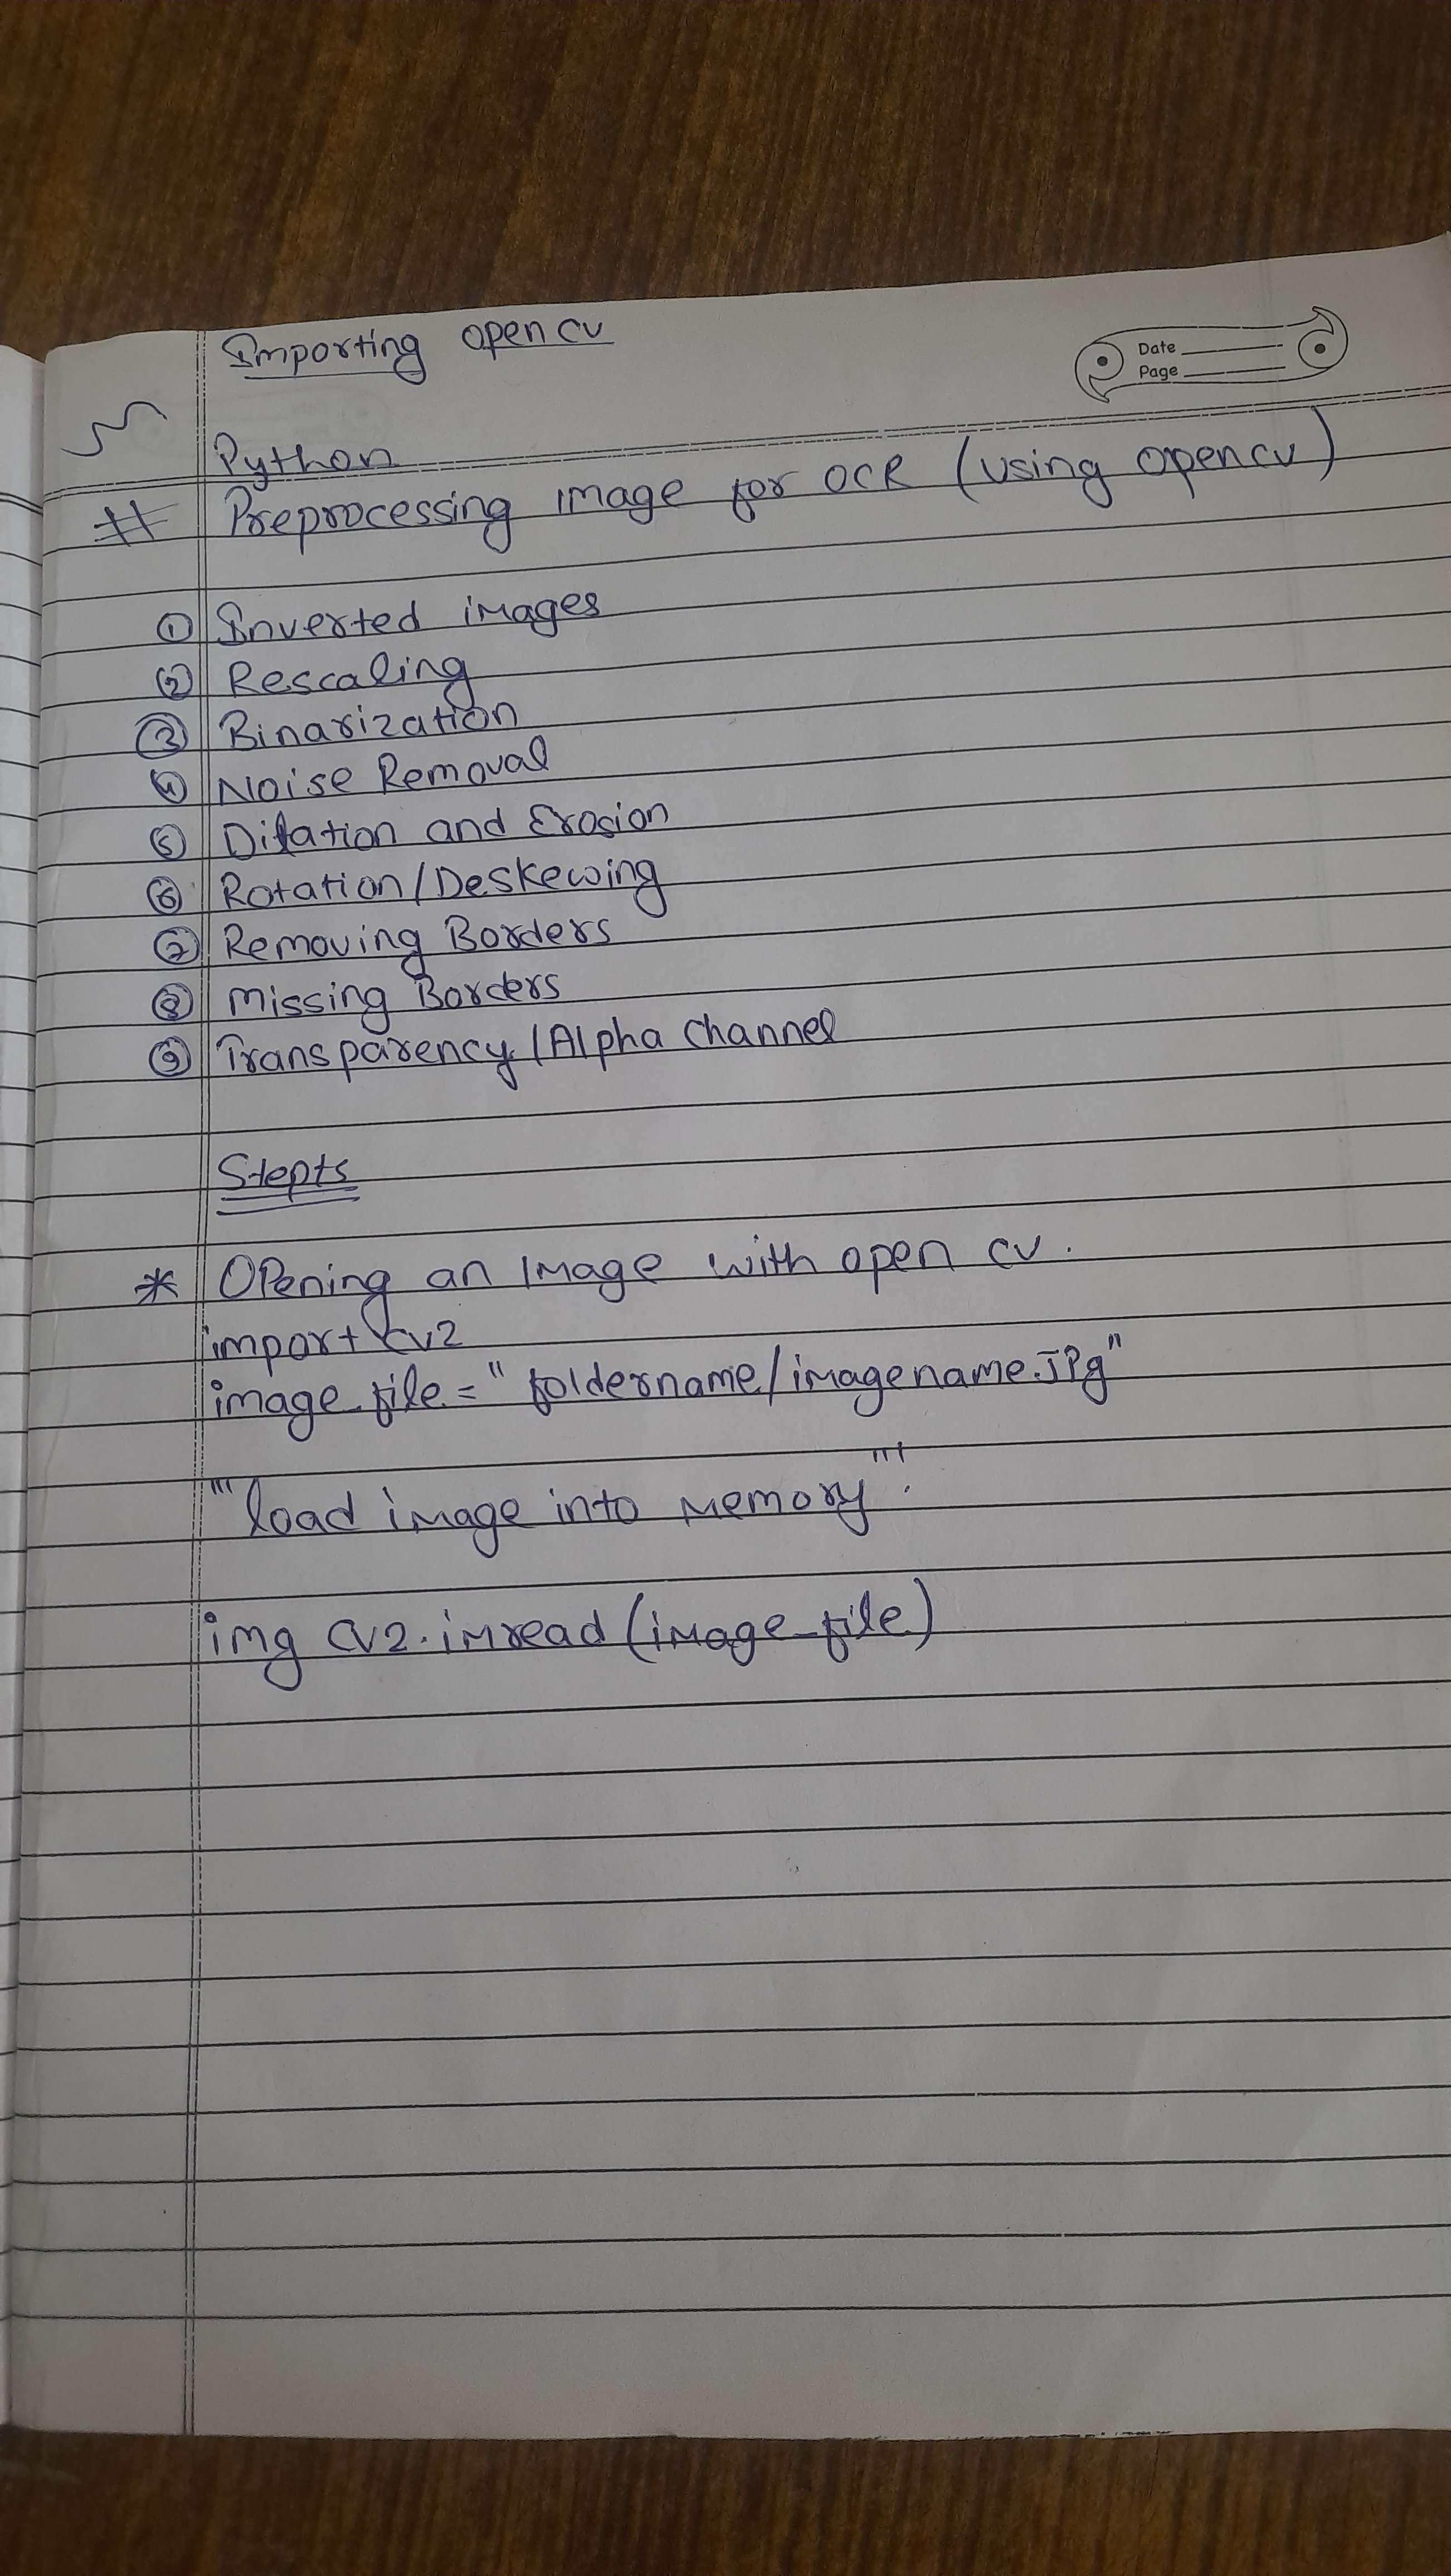 Importing open cv
Date
Page
Python
# Preprocessing image for OCR (using opencv)
① Inverted images
② Rescaling
③ Binarization
④ Noise Removal
⑤ Dilation and Erosion
⑥ Rotation/Deskewing
⑦ Removing Borders
⑧ Missing Borders
⑨ Transparency/Alpha channel
Stepts
* Opening an image with open cv.
import cv2
image_file = "foldername/imagename.JPg"
"""load image into memory""".
img cv2.imread(image_file)